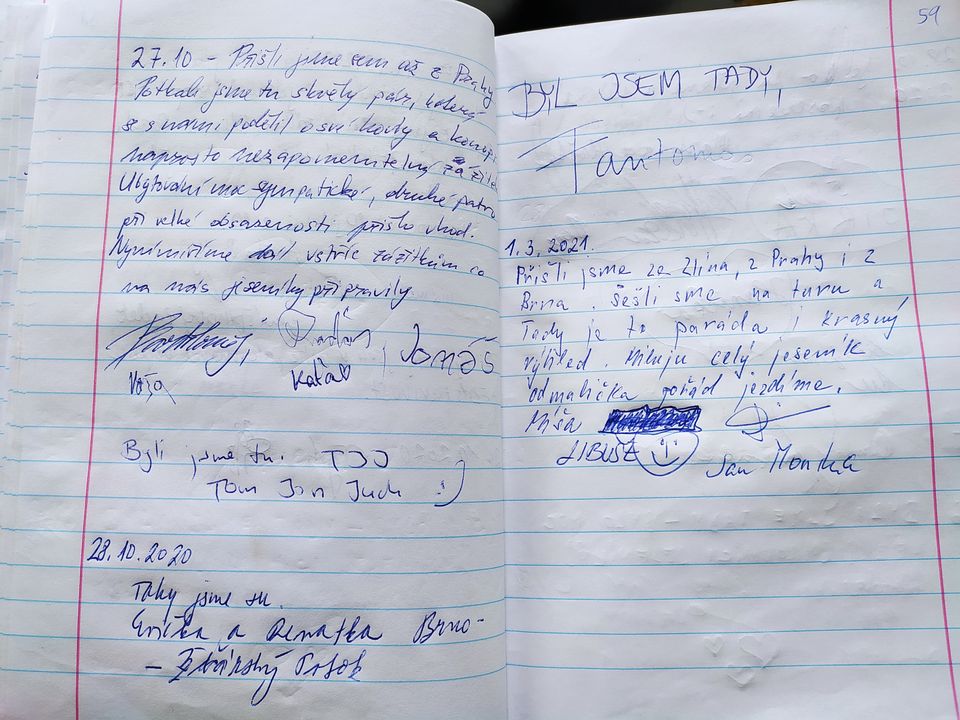 27.10 - Přišli jsme sem až z Prahy
Potkali jsme tu skvělý pár, kterej
s námi podělil o své
naprosto nezapomenutelný
Ubytování moc sympatické, druhé patro
při velké obsazenosti přišlo vhod.
Nyní míříme dál vstříc zážitkům co
na nás jeseníky připravily.
Tomáš
Káťa
Byli jsme tu. TJJ
Tom Jon Juch :)
28.10.2020
Taky jsme tu.
Evička a Renatka Brno-
- Potok
59
BYL JSEM TADY,
Fantomas
1.3.2021.
Přišli jsme ze Zlína, z Prahy i z
Brna. Sešli sme na turu a
Tady je to paráda i krasný
výhled. Miluju celý jeseník
odmalička pořád jezdíme.
Míša
LIBUŠE
San Monika